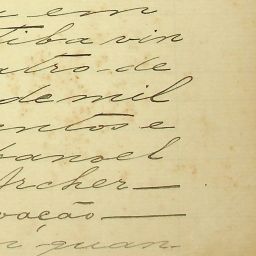 em
tiba vin
atro de
de mil
entos e
Manoel
Archer
oação
quan-